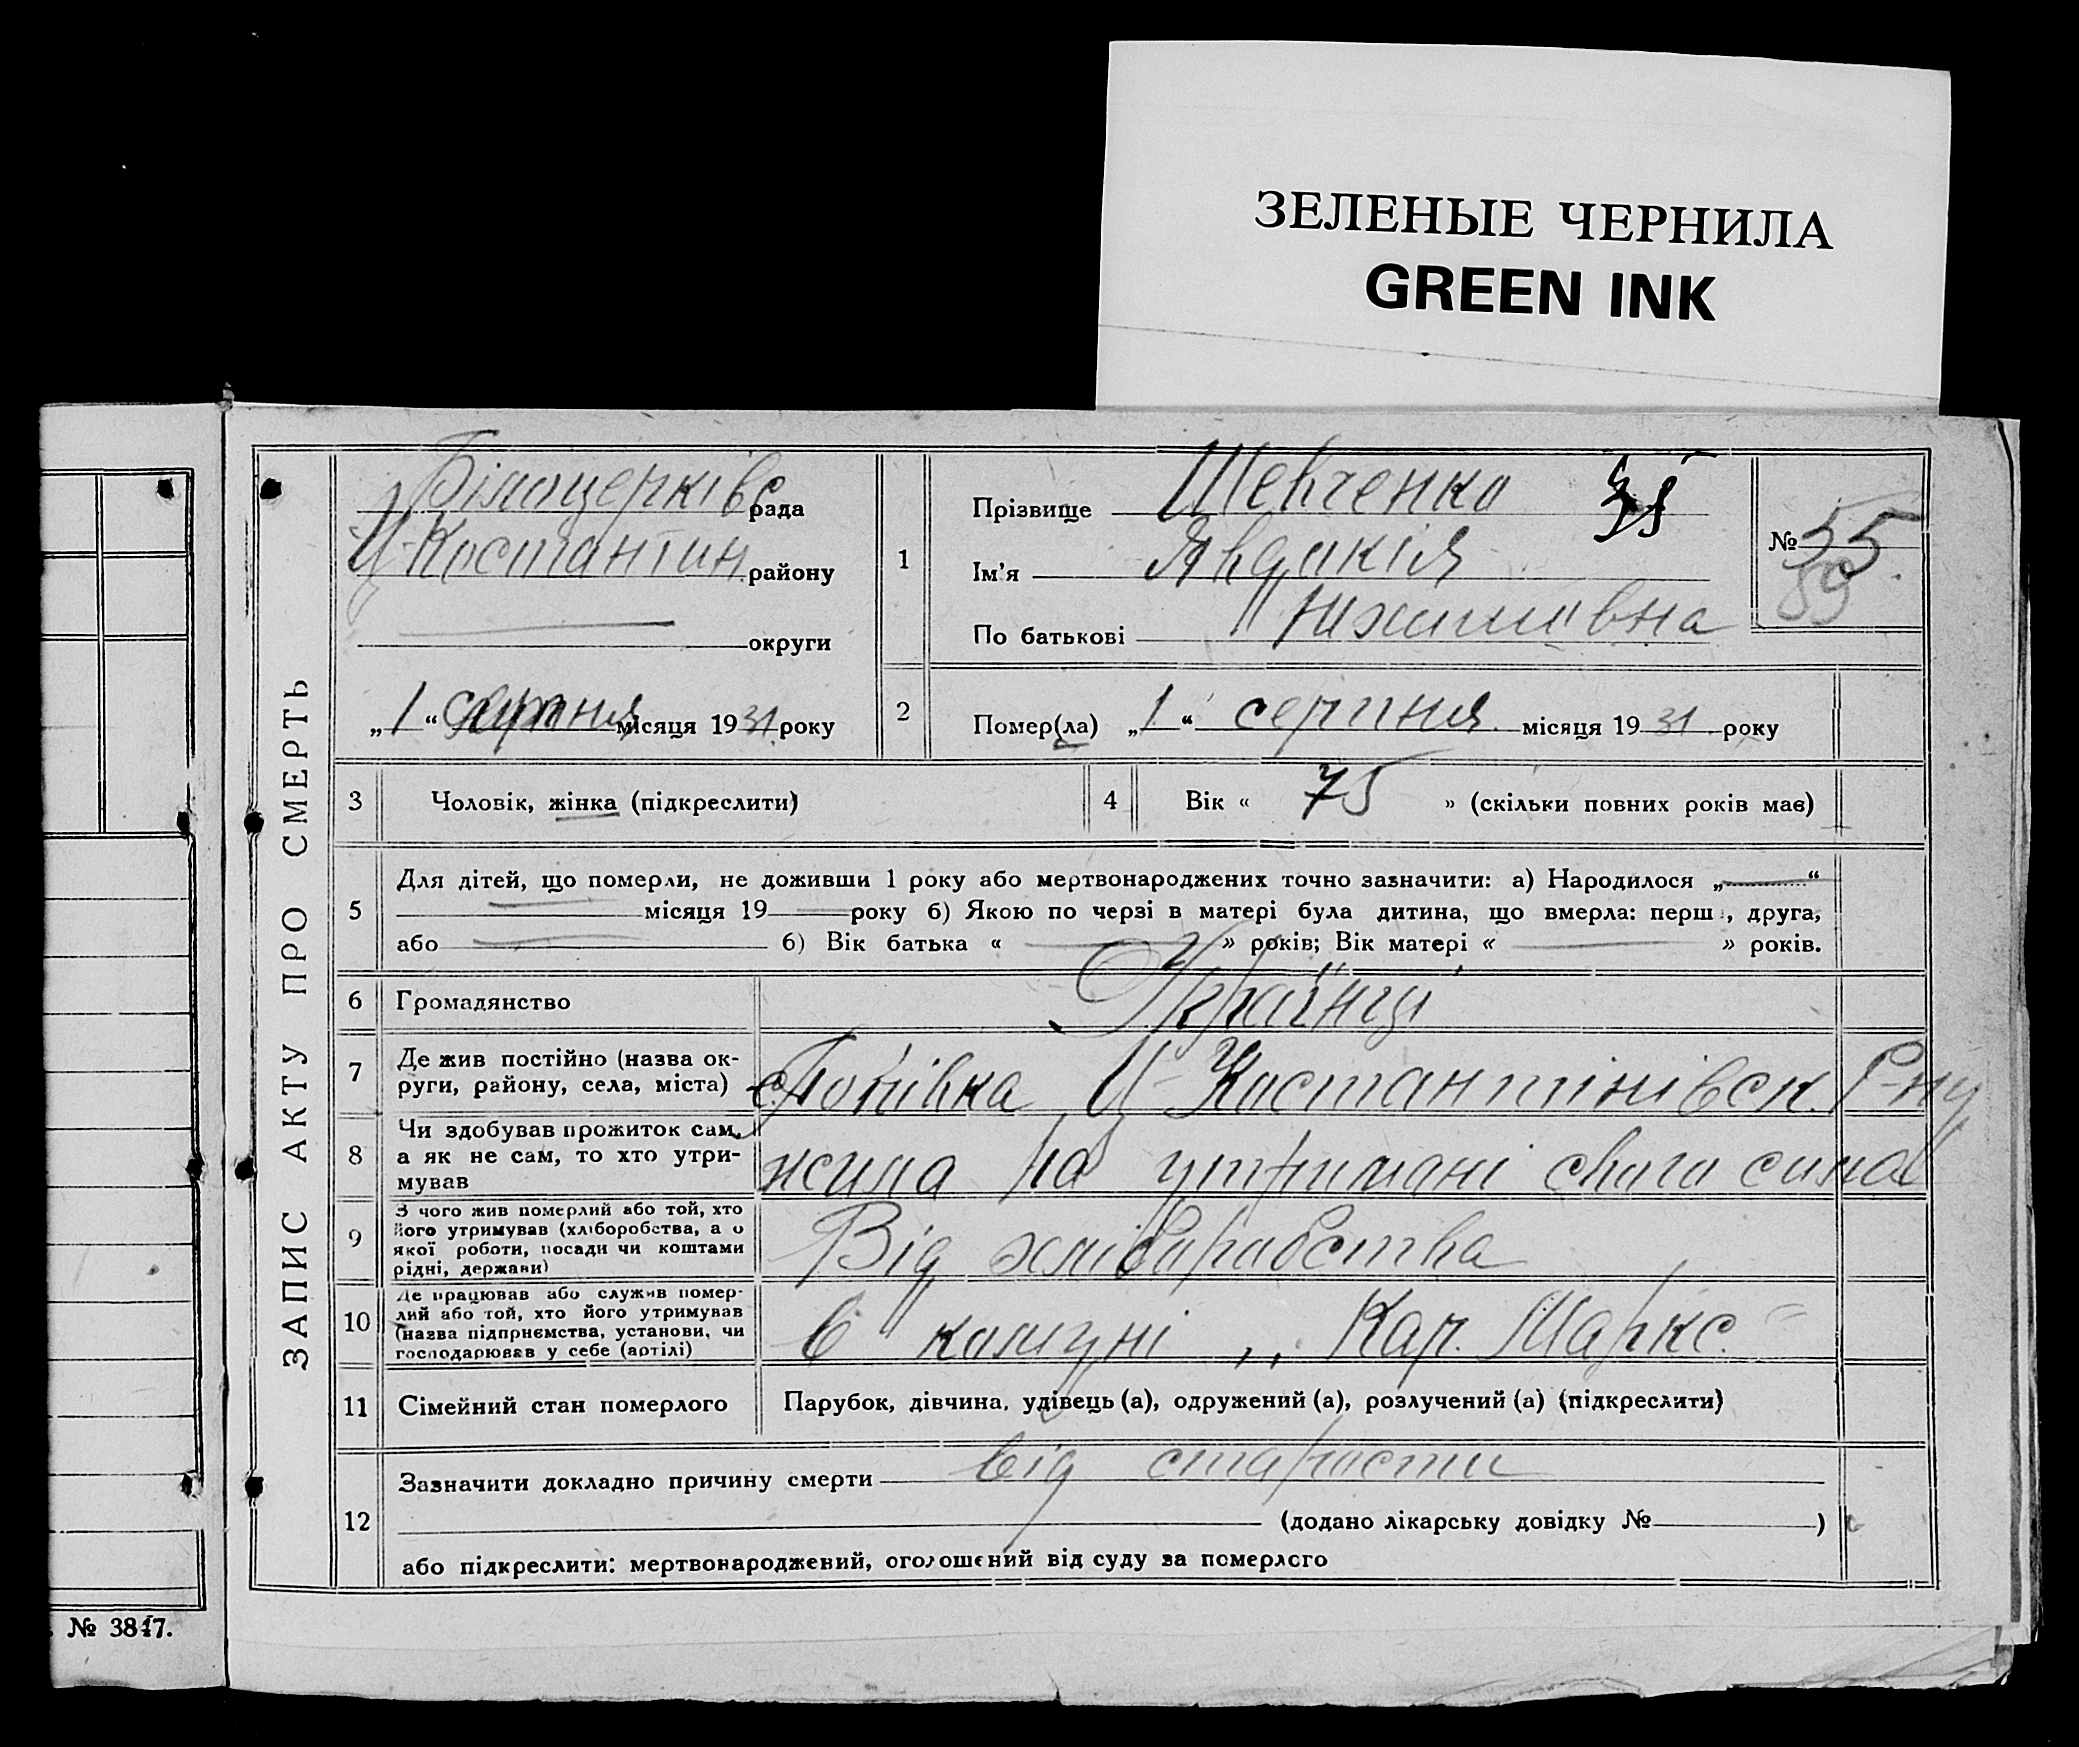 ЗЕЛЕНЫЕ ЧЕРНИЛА
GREEN INK
ЗАПИС АКТУ ПРО СМЕРТЬ
Білоцерківс рада
Ц-Костантин. району
округи
„1“ серпня місяця 1931 року
1
Прізвище Шевченко
Ім'я Явдокія
По батькові
№ 55
89
2
Помер(ла) „1“ серпня місяця 1931 року
3 Чоловік, жінка (підкреслити)
4 Вік « 75 » (скільки повних років має)
5
Для дітей, що померли, не доживши 1 року або мертвонароджених точно зазначити: а) Народилося „ “
місяця 19 року б) Якою по черзі в матері була дитина, що вмерла: перш , друга,
або б) Вік батька « » років; Вік матері « » років.
6 Громадянство Українці
7
Де жив постійно (назва ок-
руги, району, села, міста)
Ц-Костантинівск. Р-ну
8
Чи здобував прожиток сам,
а як не сам, то хто утри-
мував
жила на утримані свого сина
9
З чого жив померлий або той, хто
його утримував (хліборобства, а о
якої роботи, посади чи коштами
рідні, держави)
Від хліборобства
10
Де працював або служив помер-
лий або той, хто його утримував
(назва підприємства, установи, чи
господарював у себе (артілі)
в комуні ,, Кар. Маркс.“
11 Сімейний стан померлого Парубок, дівчина, удівець (а), одружений (а), розлучений (а) (підкреслити)
12
Зазначити докладно причину смерти від старости
(додано лікарську довідку № )
або підкреслити: мертвонароджений, оголошений від суду за померлого
№ 3847.